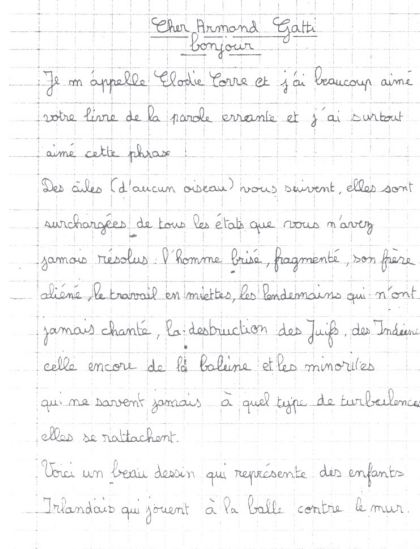 Cher Armand Gatti
bonjour
Je m'appelle Elodie Corre et j'ai beaucoup aimé
votre livre de la parole errante et j'ai surtout
aimé cette phrase
Des ailes (d'aucun oiseau) vous suivent, elles sont
surchargées de tous les états que vous n'avez
jamais résolus : l'homme brisé, fragmenté, son frère
aliéné, le travail en miettes, les lendemains qui n'ont
jamais chanté, la destruction des Juifs, des Indiens
celle encore de la baleine et les minorités
qui ne savent jamais à quel type de turbulence
elles se rattachent.
Voici un beau dessin qui représente des enfants
Irlandais qui jouent à la balle contre le mur.